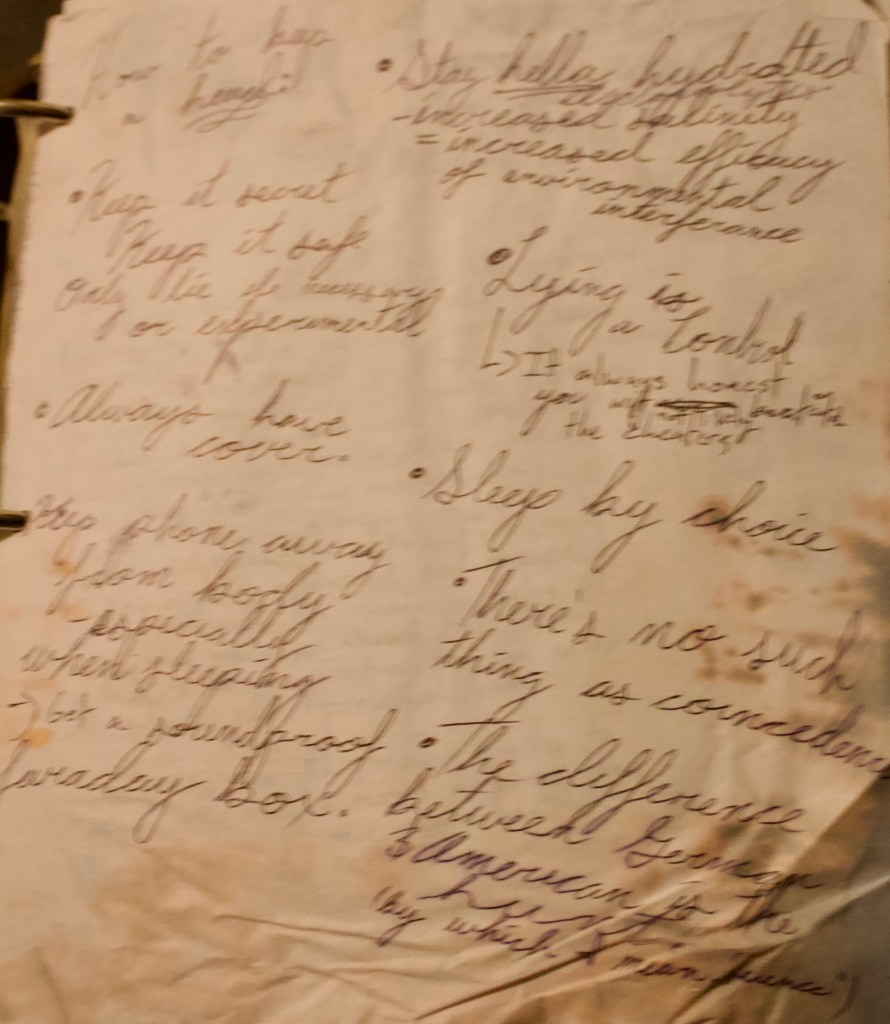 How to keep
a
• Keep it secret
Keep it safe
Only lie if necessary
or experimental
• Always have
cover.
Keep phone away
from body
- especially
when sleeping
→ Get a soundproof
faraday box.
• Stay hella hydrated
- increased salinity
= increased efficacy
of environmental
interferance
• Lying is
a control
↳ If always honest
you
the
• Sleep by choice
• There's no such
thing as coincedence
• The difference
between German
& American is the
(by which I mean "science")